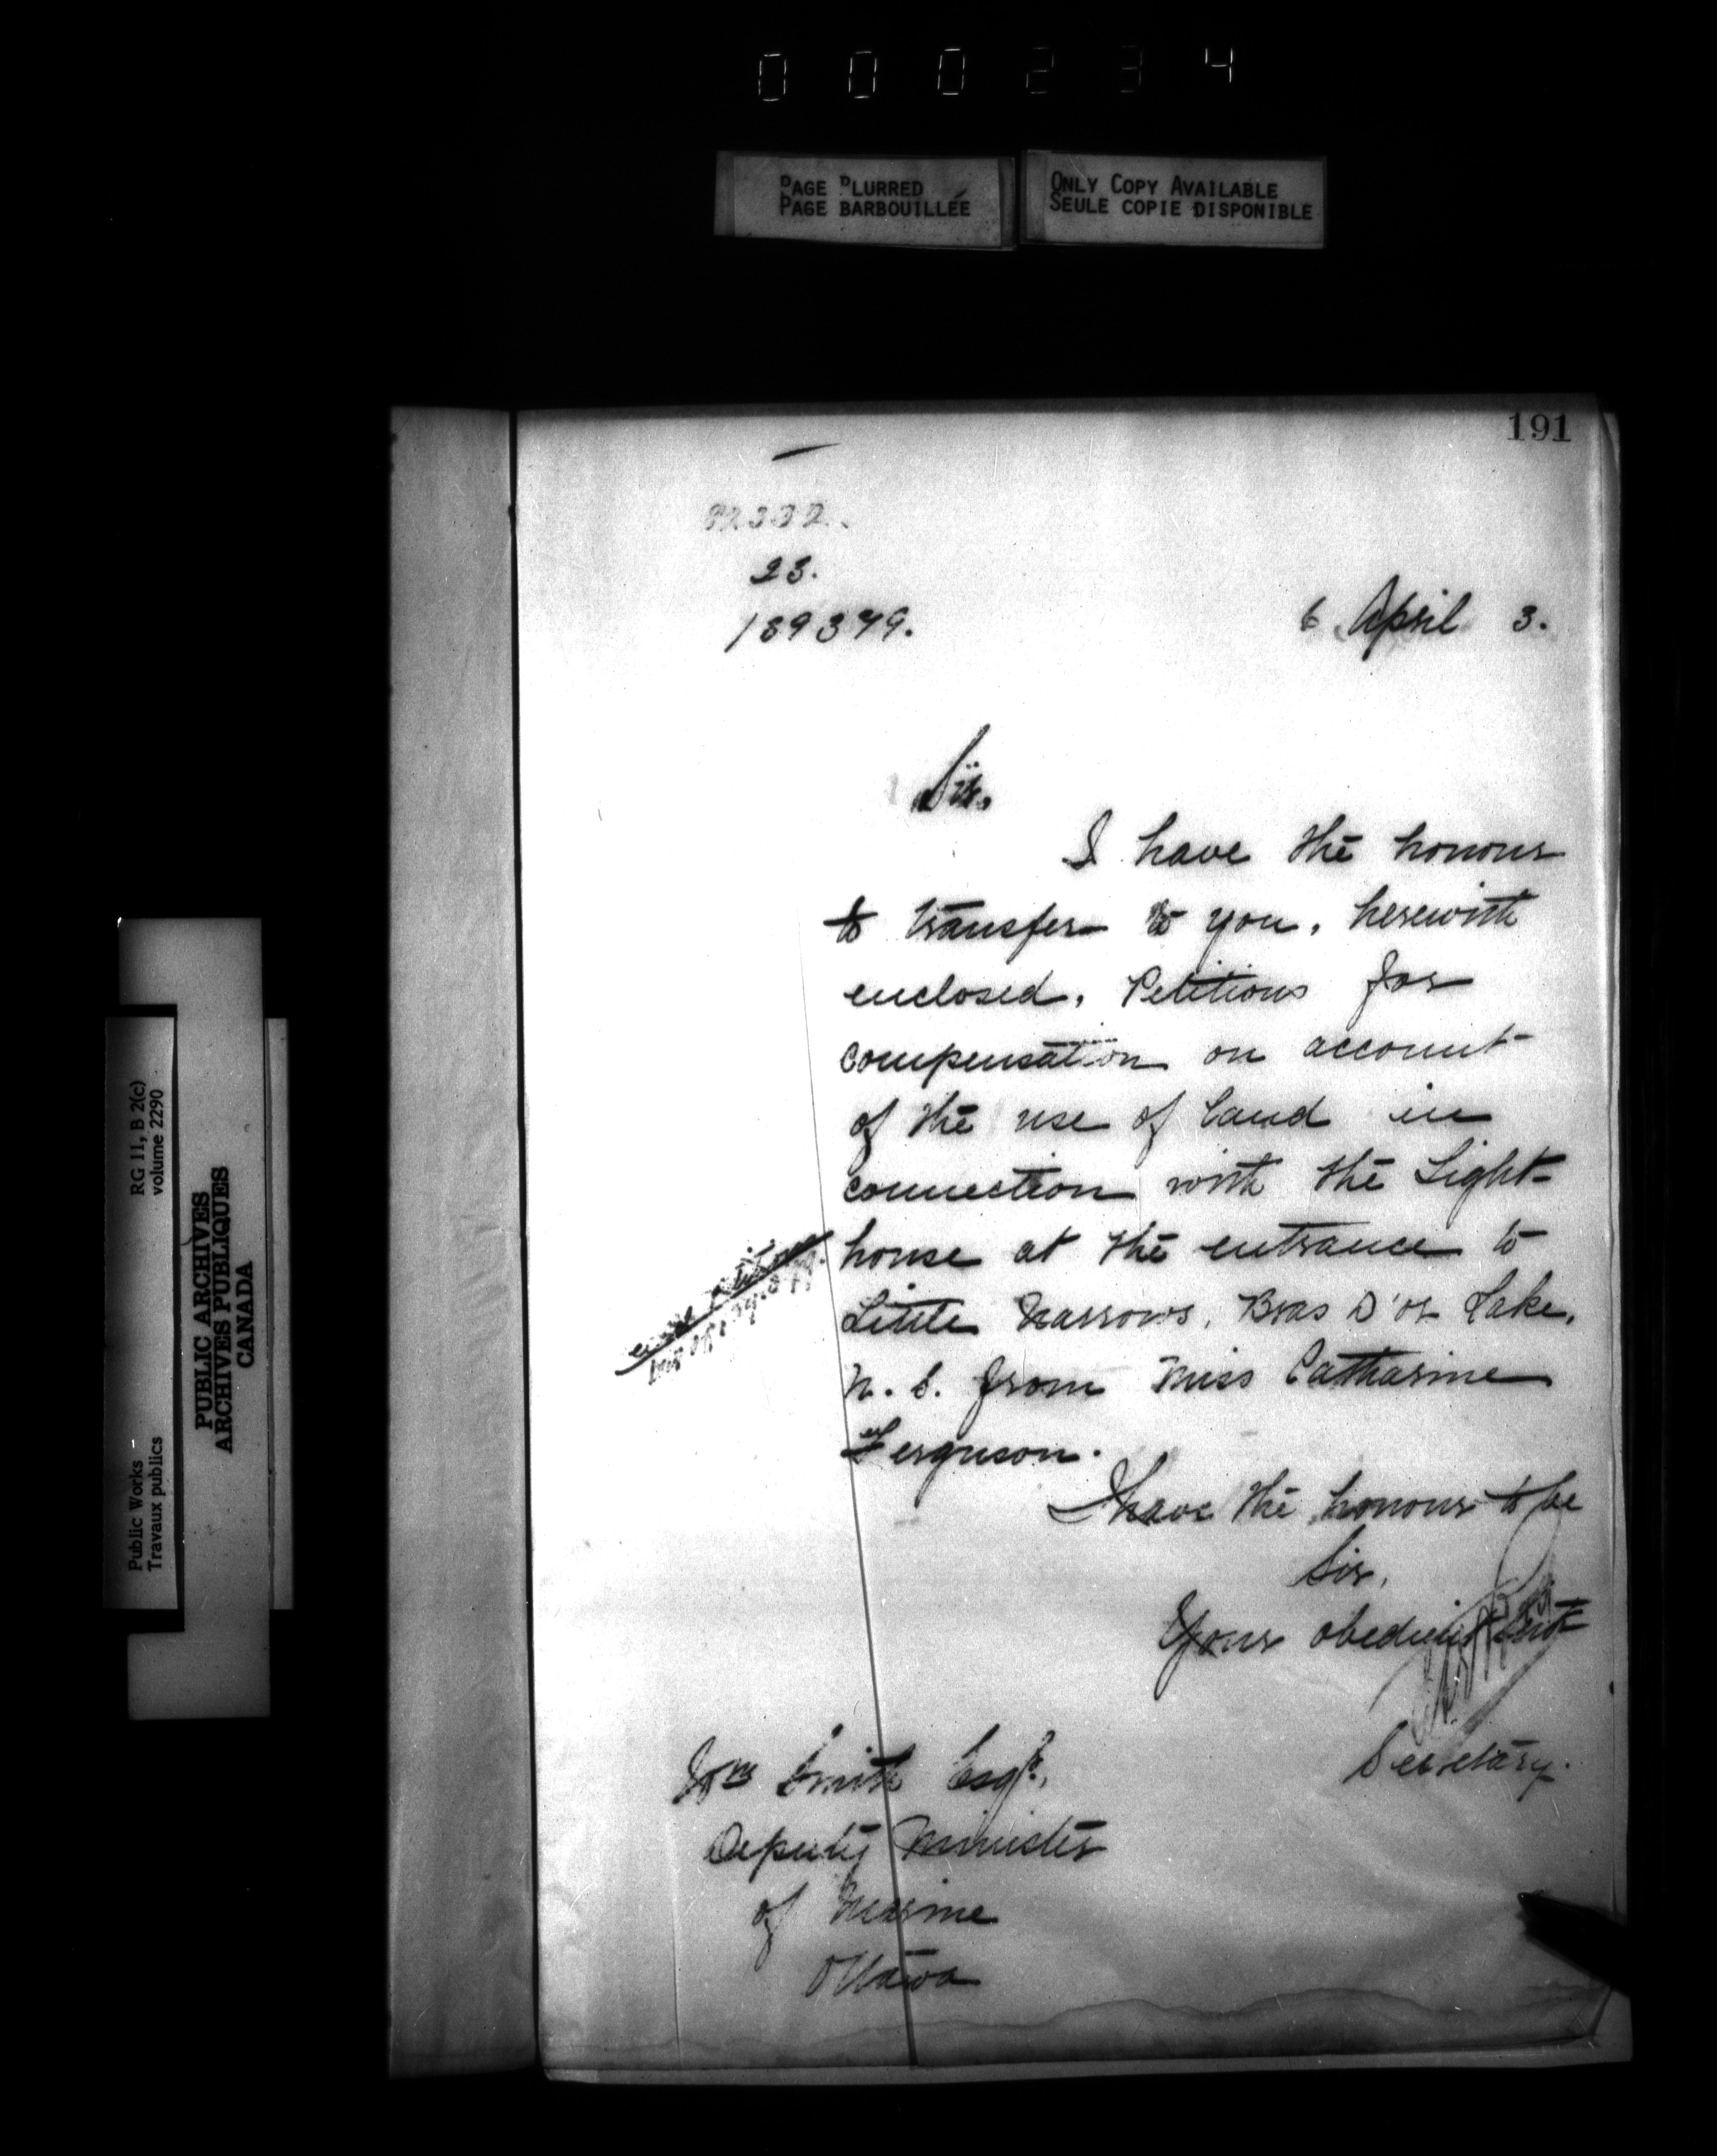 000234
PAGE BLURRED
PAGE BARBOUILLÉE
ONLY COPY AVAILABLE
SEULE COPIE DISPONIBLE
191
23.
189379.
6 April 3.
Sir,
I have the honour
to transfer to you, herewith
enclosed, Petitions for
compensation on account
of the use of land in
connection with the Light-
house at the entrance to
Little Narrows, Bras D'or Lake,
N. S. from Miss Catharine
Ferguson.
I have the honour to be
Sir,
Your obedient Servt
Secretary.
Wm Smith Esqr.,
Deputy Minister
of Marine
Ottawa
Public Works
Travaux publics
RG 11, B 2(c)
volume 2290
PUBLIC ARCHIVES
ARCHIVES PUBLIQUES
CANADA